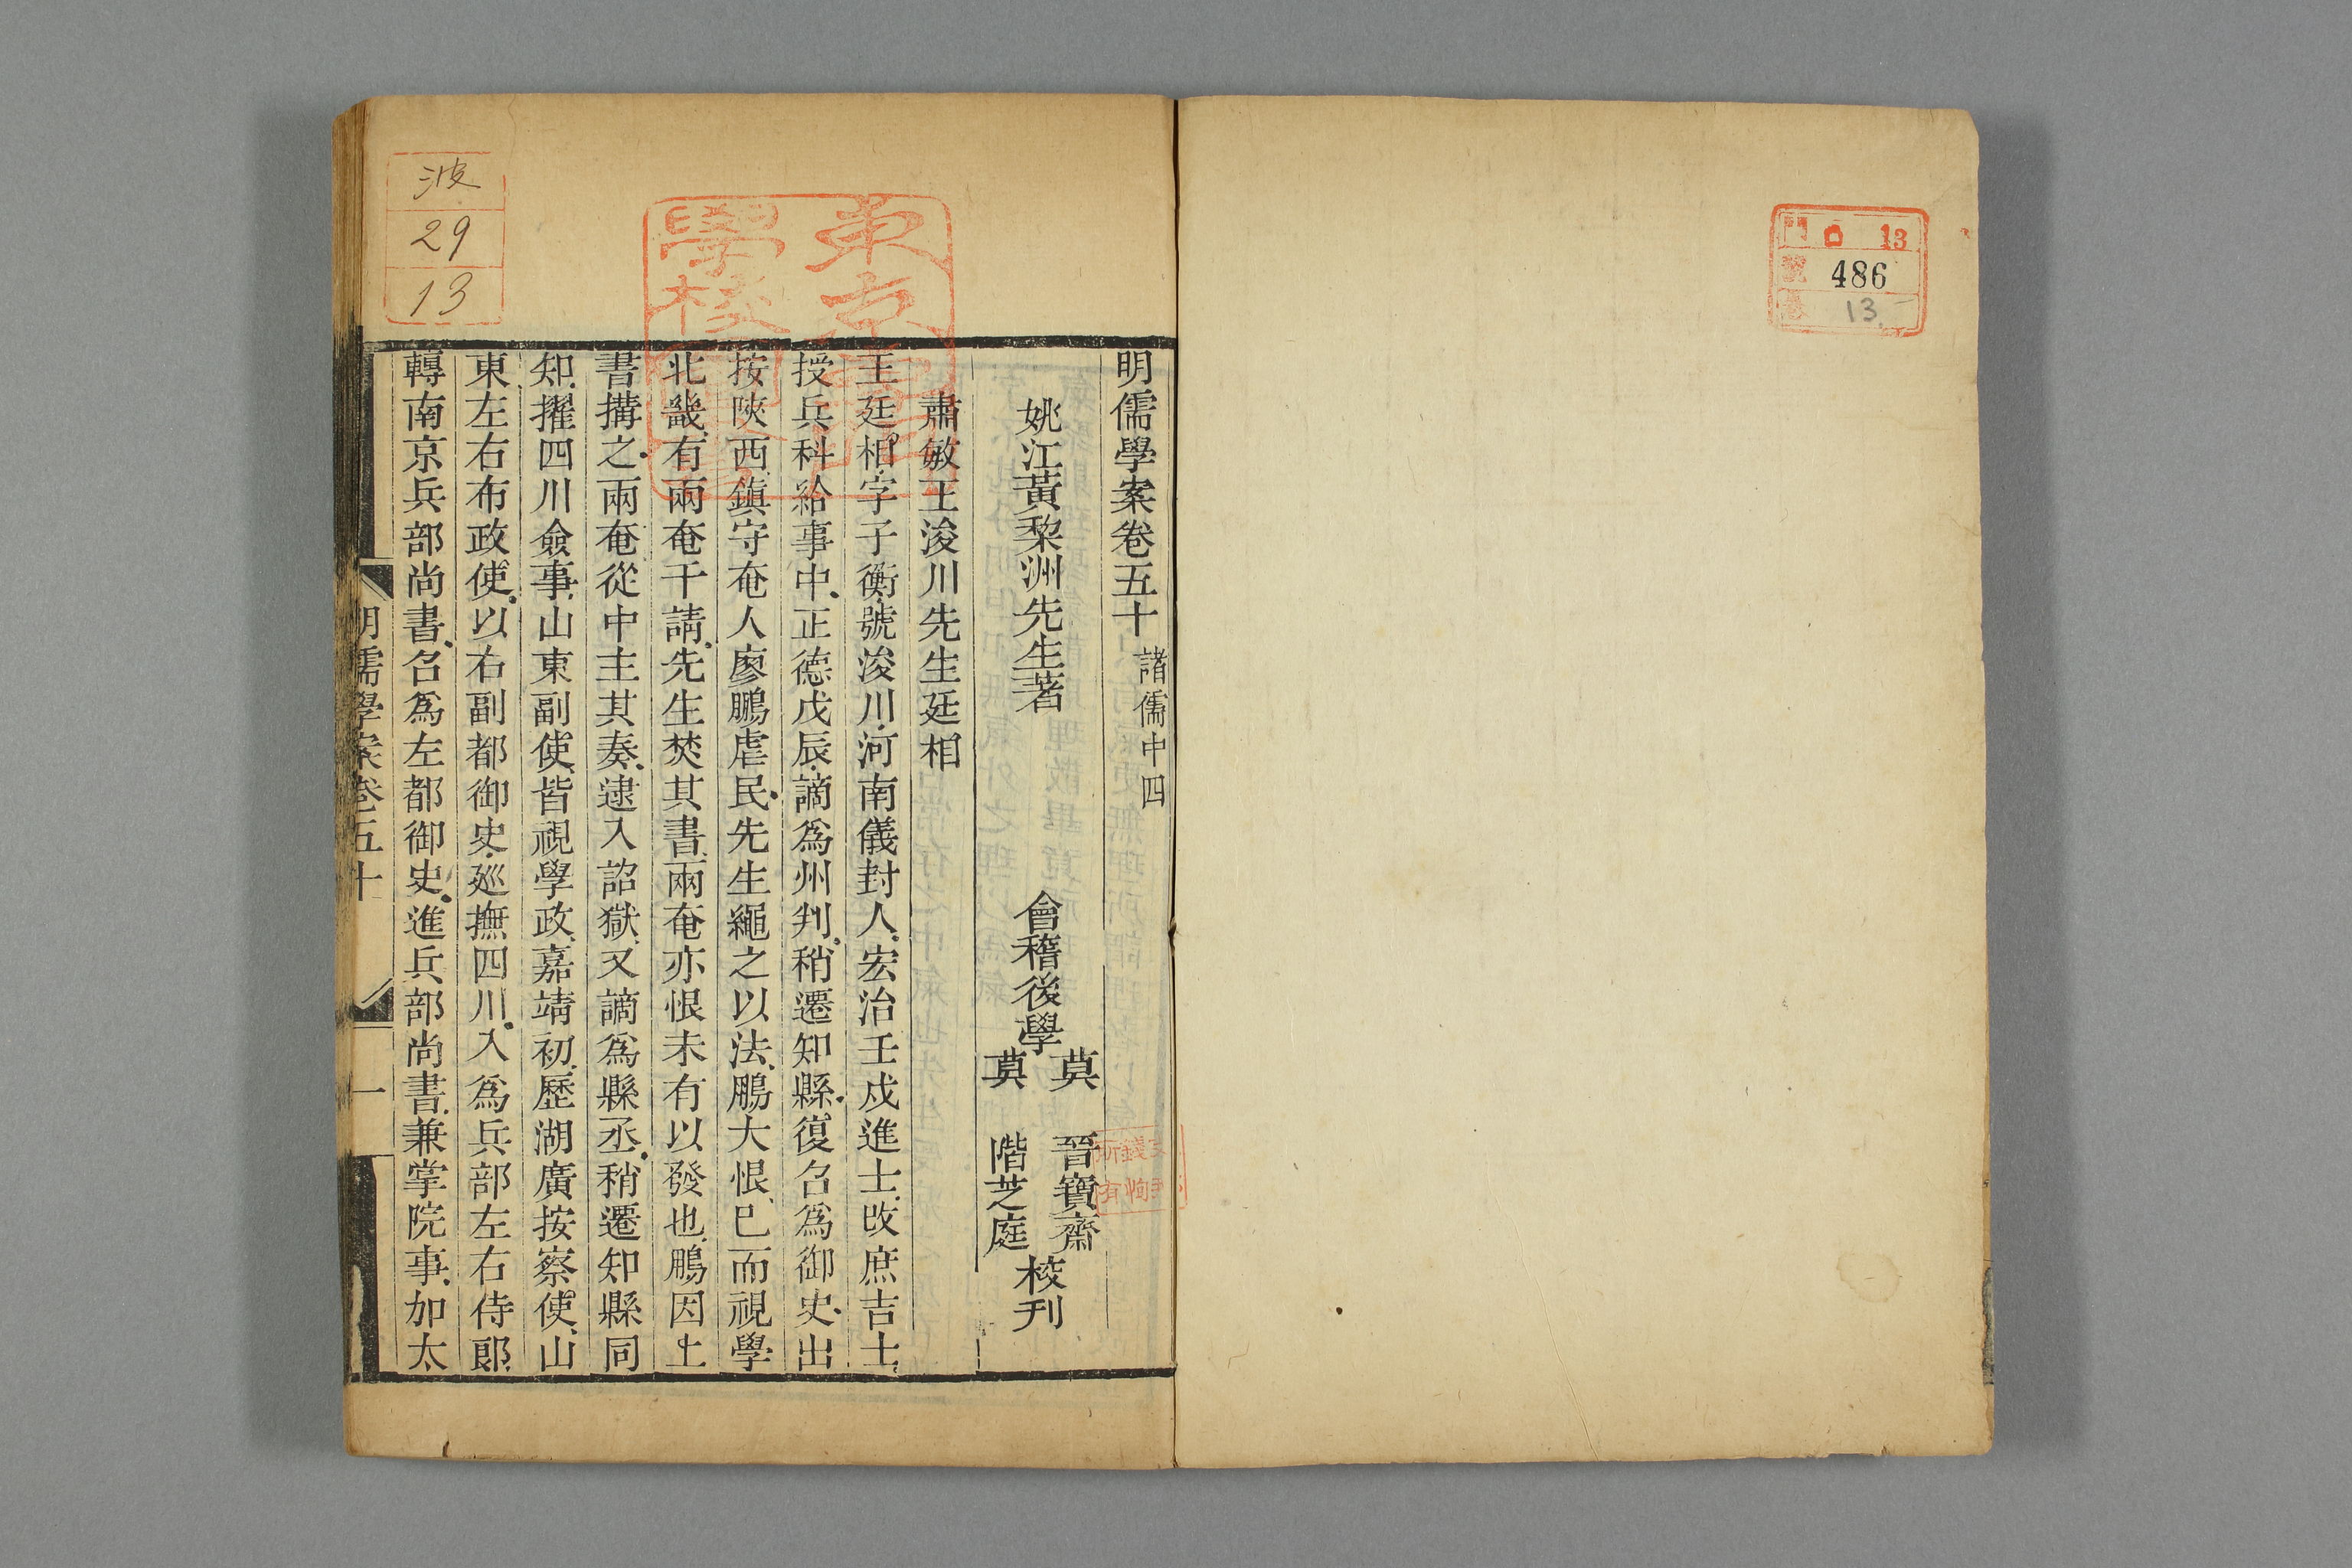 門 13
號 486
13
明儒學案卷五十 諸儒中四
姚江黃棃洲先生著
會稽後學
莫 晉寶齋
莫 階芝庭
校刊
肅敏王浚川先生廷相
王廷相字子衡號浚川河南儀封人宏治壬戌進士改庶吉士
授兵科給事中正德戊辰謫爲州判稍遷知縣復召爲御史出
按陝西鎮守奄人廖鵬虐民先生繩之以法鵬大恨已而視學
北畿有兩奄干請先生焚其書兩奄亦恨未有以發也鵬因上
書搆之兩奄從中主其奏逮入詔獄又謫爲縣丞稍遷知縣同
知擢四川僉事山東副使皆視學政嘉靖初歷湖廣按察使山
東左右布政使以右副都御史廵撫四川入爲兵部左右侍郎
轉南京兵部尚書召爲左都御史進兵部尚書兼掌院事加太
明儒學案卷五十
一
東京
學校
波
29
13